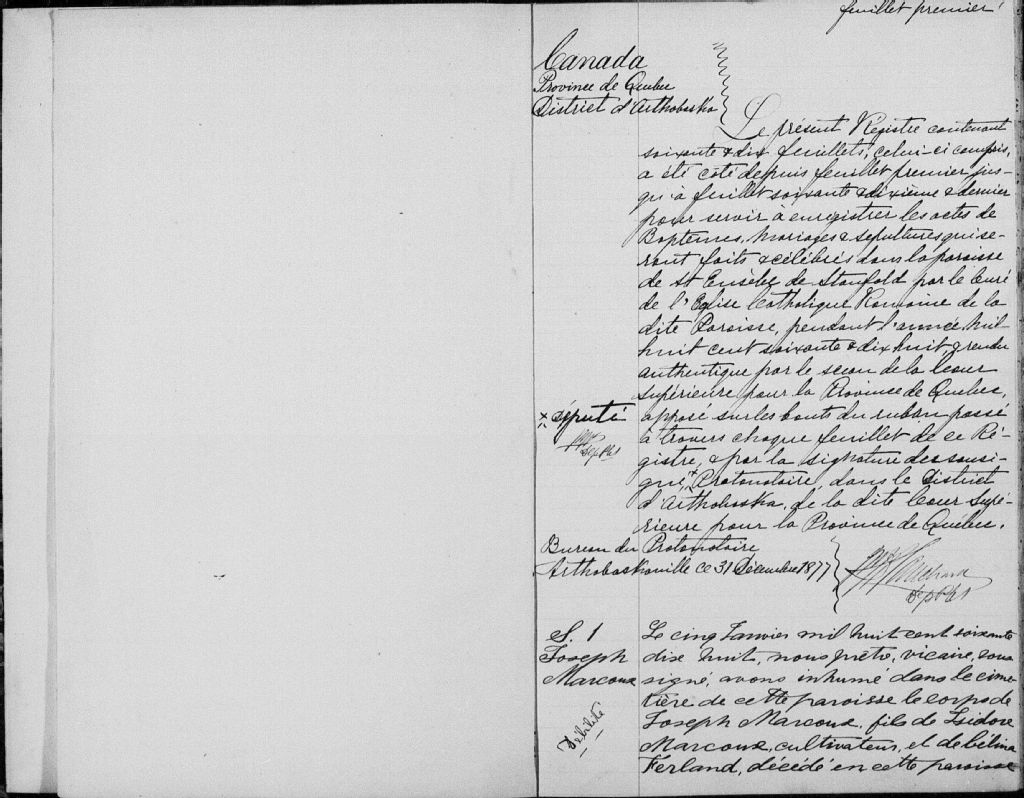 feuillet premier
Canada
Province de Quebec
District d'Arthabaska
Le présent Régistre contenant
soixante & dix feuillets, celui-ci compris,
a été côté depuis feuillet premier jus-
qu'à feuillet soixante & dixième & dernier
pour servir à enregistrer les actes de
Baptemes, mariages & sepultures qui se-
ront faits & célébrés dans la paroisse
de St Eusèbe de Stanfold par le Curé
de l'Eglise Catholique Romaine de la
dite Paroisse, pendant l'année mil-
huit cent soixante & dix huit, & rendu
authentique par le sceau de la Cour
Supérieure pour la Province de Quebec,
apposé sur les bouts du ruban passé
à travers chaque feuillet de ce Ré-
gistre, & par la signature des sousi-
gné, x Protonotaire, dans le District
d'Arthabaska, de la dite Cour Supé-
rieure pour la Province de Québec.
x député
Bureau du Protonotaire
Arthabaskaville ce 31 Décembre 1877
S. 1
Joseph
Marcoux
Débilité
Le cinq Janvier mil huit cent soixante
dix huit, nous prêtre, vicaire, sous
signé, avons inhumé dans le cime-
tière de cette paroisse le corps de
Joseph Marcoux, fils de Isidore
Marcoux, cultivateur, et de Célina
Ferland, décédé en cette paroisse